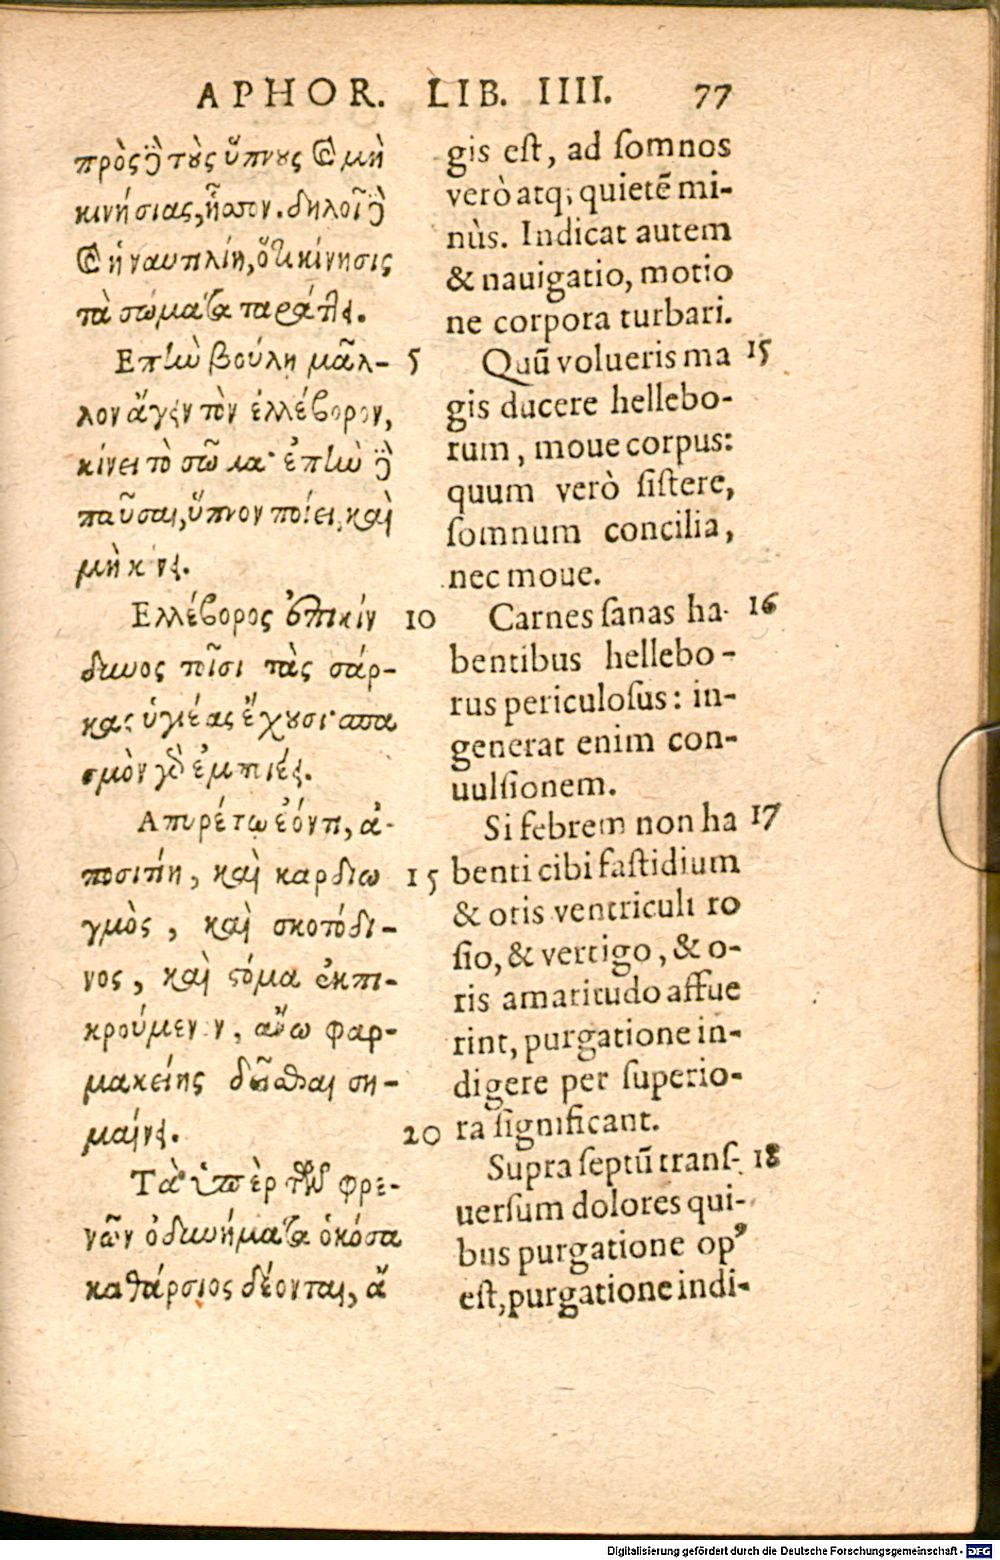 APHOR. LIB. IIII. 77
πρὸς δὲ τοὺς ὕπνους καὶ μὴ
κινήσιας, ἧσσον. δηλοῖ δὲ
καὶ ἡ ναυτιλίη, ὅτι κίνησις
τὰ σώματα ταράττει.
Επὴν βούλῃ μᾶλ- 5
λον ἄγειν τὸν ἑλλέβορον,
κίνει τὸ σῶμα· ἐπὴν δὲ
παῦσαι, ὕπνον ποίει, καὶ
μὴ κίνει.
Ελλέβορος ἐπικίν 10
δυνος τοῖσι τὰς σάρ-
κας ὑγιέας ἔχουσι· σπα
σμὸν γὰρ ἐμποιέει.
Απυρέτῳ ἐόντι, ἀ-
ποσιτίη, καὶ καρδιω 15
γμὸς, καὶ σκοτόδι-
νος, καὶ στόμα ἐκπι-
κρούμενον, ἄνω φαρ-
μακείης δεῖσθαι ση-
μαίνει. 20
Τὰ ὑπὲρ τῶν φρε-
νῶν ὀδυνήματα ὁκόσα
καθάρσιος δέονται, ἄ
gis est, ad somnos
verò atq; quietẽ mi-
nùs. Indicat autem
& nauigatio, motio
ne corpora turbari.
Quũ volueris ma 15
gis ducere hellebo-
rum, moue corpus:
quum verò sistere,
somnum concilia,
nec moue.
Carnes sanas ha- 16
bentibus hellebo-
rus periculosus: in-
generat enim con-
uulsionem.
Si febrem non ha 17
benti cibi fastidium
& oris ventriculi ro
sio, & vertigo, & o-
ris amaritudo affue
rint, purgatione in-
digere per superio-
ra significant.
Supra septũ trans- 18
uersum dolores qui-
bus purgatione opꝰ
est, purgatione indi-
Digitalisierung gefördert durch die Deutsche Forschungsgemeinschaft - DFG